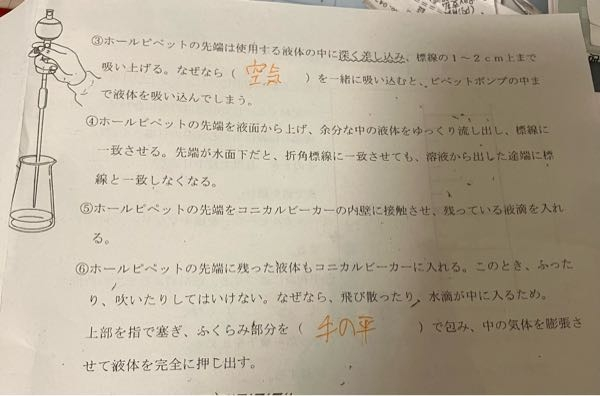 ③ホールピペットの先端は使用する液体の中に深く差し込み、標線の1～2cm上まで
吸い上げる。なぜなら（ 空気 ）を一緒に吸い込むと、ピペットポンプの中ま
で液体を吸い込んでしまう。
④ホールピペットの先端を液面から上げ、余分な中の液体をゆっくり流し出し、標線に
一致させる。先端が水面下だと、折角標線に一致させても、溶液から出した途端に標
線と一致しなくなる。
⑤ホールピペットの先端をコニカルビーカーの内壁に接触させ、残っている液滴を入れ
る。
⑥ホールピペットの先端に残った液体もコニカルビーカーに入れる。このとき、ふった
り、吹いたりしてはいけない。なぜなら、飛び散ったり、水滴が中に入るため。
上部を指で塞ぎ、ふくらみ部分を（ 手の平 ）で包み、中の気体を膨張さ
せて液体を完全に押し出す。